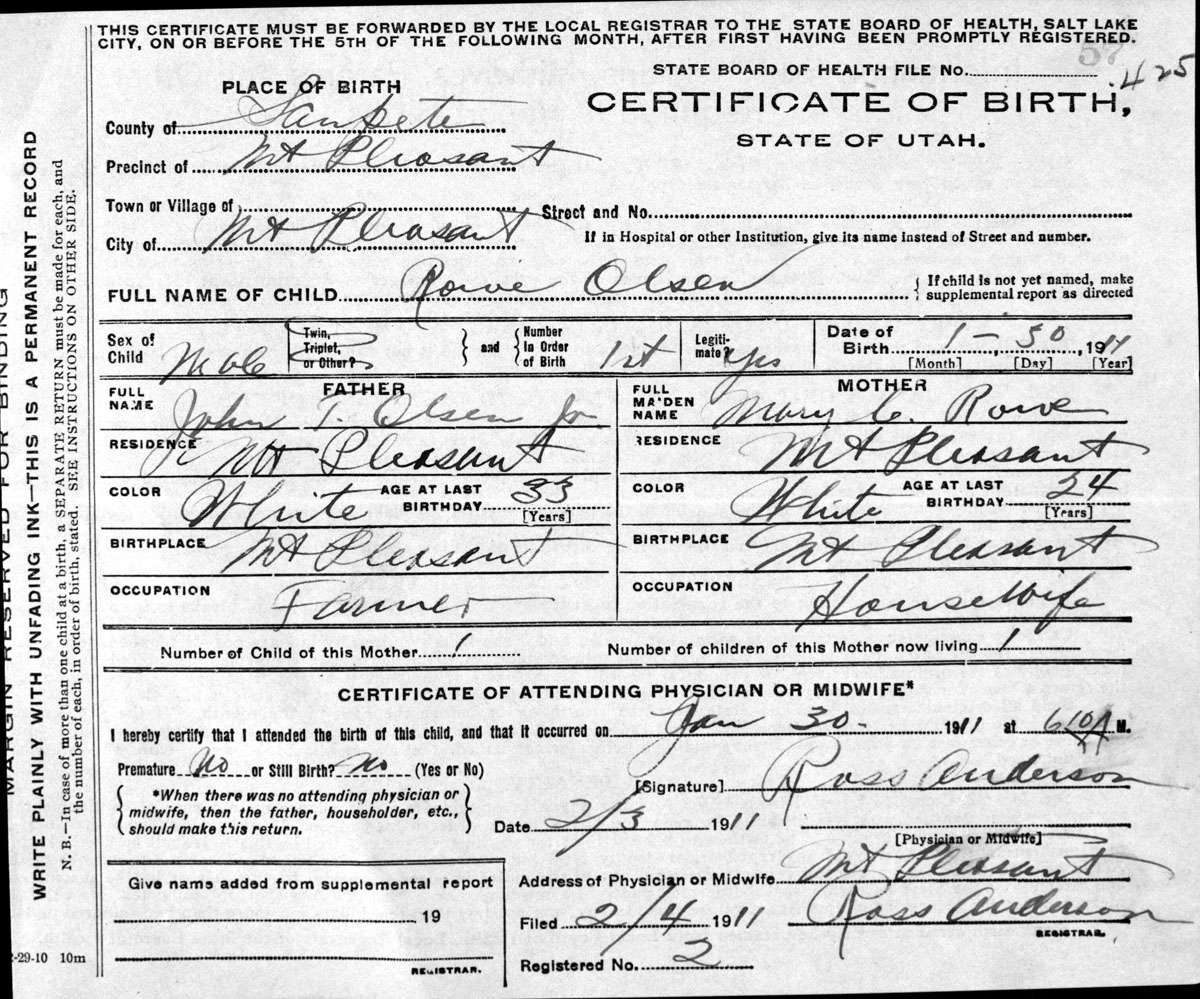 THIS CERTIFICATE MUST BE FORWARDED BY THE LOCAL REGISTRAR TO THE STATE BOARD OF HEALTH, SALT LAKE
CITY, ON OR BEFORE THE 5TH OF THE FOLLOWING MONTH, AFTER FIRST HAVING BEEN PROMPTLY REGISTERED.
57
STATE BOARD OF HEALTH FILE No. 425
PLACE OF BIRTH
CERTIFICATE OF BIRTH,
STATE OF UTAH.
County of Sanpete
Precinct of Mt Pleasant
Town or Village of
Street and No.
City of Mt Pleasant
If in Hospital or other Institution, give its name instead of Street and number.
FULL NAME OF CHILD Rowe Olsen
If child is not yet named, make
supplemental report as directed
Sex of Child Male
Twin, Triplet, or Other?
and
Number in Order of Birth 1st
Legiti-mate? Yes
Date of Birth 1 - 30, 1911
[Month] [Day] [Year]
FATHER
FULL NAME John T. Olsen Jr
RESIDENCE Mt Pleasant
COLOR White AGE AT LAST BIRTHDAY 33 [Years]
BIRTHPLACE Mt Pleasant
OCCUPATION Farmer
MOTHER
FULL MAIDEN NAME Mary C. Rowe
RESIDENCE Mt Pleasant
COLOR White AGE AT LAST BIRTHDAY 24 [Years]
BIRTHPLACE Mt Pleasant
OCCUPATION Housewife
Number of Child of this Mother 1
Number of children of this Mother now living 1
CERTIFICATE OF ATTENDING PHYSICIAN OR MIDWIFE*
I hereby certify that I attended the birth of this child, and that it occurred on Jan 30 - 1911 at 610 A M.
Premature No or Still Birth? No (Yes or No)
*When there was no attending physician or
midwife, then the father, householder, etc.,
should make this return.
[Signature] Ross Anderson
Date 2/3 1911
[Physician or Midwife]
Give name added from supplemental report
19
REGISTRAR.
Address of Physician or Midwife Mt Pleasant
Filed 2/4 1911 Ross Anderson
REGISTRAR.
Registered No. 2
-29-10 10m
MARGIN RESERVED FOR BINDING
WRITE PLAINLY WITH UNFADING INK—THIS IS A PERMANENT RECORD
N. B.—In case of more than one child at a birth, a SEPARATE RETURN must be made for each, and
the number of each, in order of birth, stated. SEE INSTRUCTIONS ON OTHER SIDE.